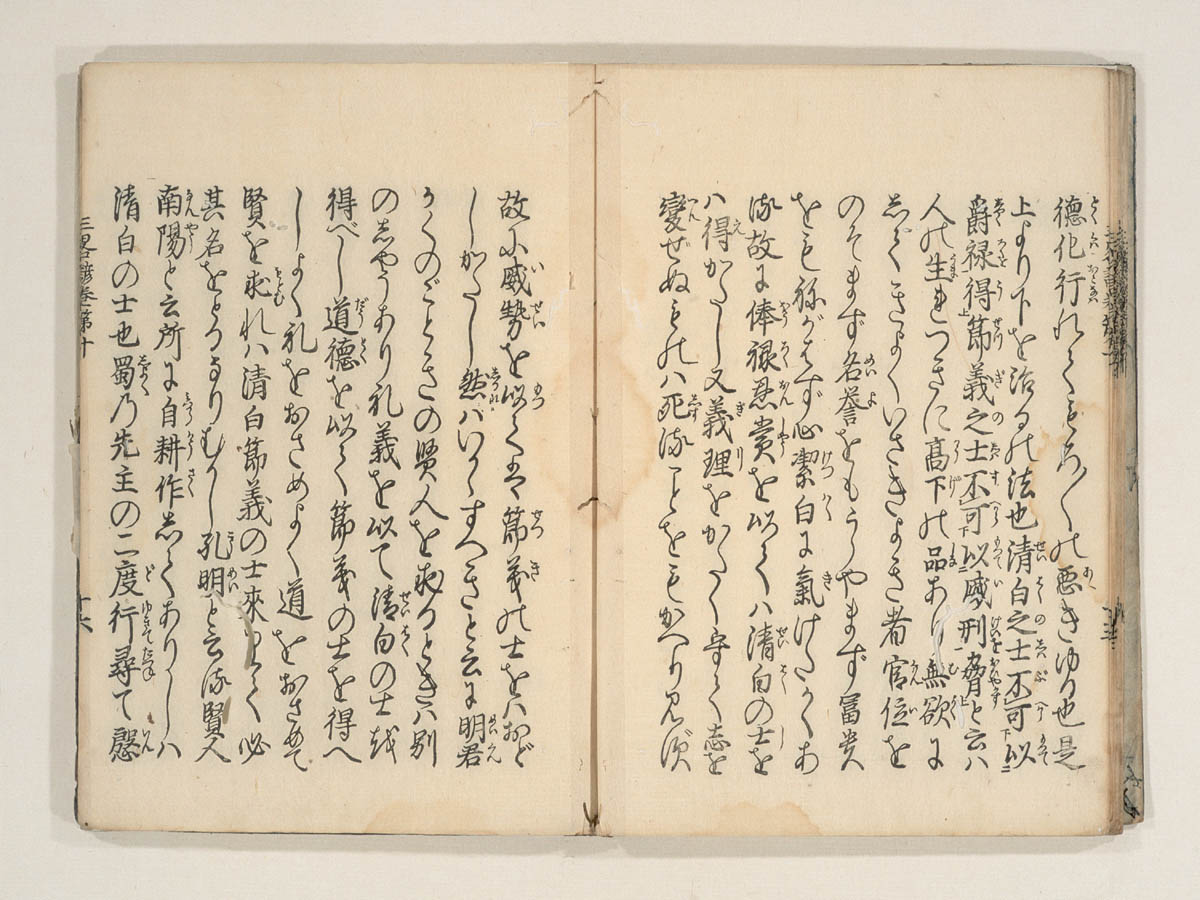 德化行れても久しくの悪きゆゑ也是
上より下を治るの法也清白之士不可以
爵禄得節義之士不可以威刑脅と云ハ
人の生れつきに高下の品あり無欲に
してきよくいさきよき者官位を
のそまず名誉をもうやまず冨貴
をもねがはず心潔白に氣けたかくあ
る故に俸禄恩賞を以てハ清白の士を
ハ得かたし又義理をかたく守て志を
變ぜぬものハ死することをもかへり見ず
故に威勢を以ては節義の士をハおど
しかたし然ハいかゞすへきと云に明君
かくのごときの賢人を求るときハ別
のしやうあり礼義を以て清白の士を
得べし道德を以て節義の士を得へ
しよく礼をおさめよく道をおさめて
賢を求れハ清白節義の士來りて必
其名をとるなりむかし孔明と云る賢人
南陽と云所に自耕作してありしハ
清白の士也蜀乃先主の二度行尋て慇
三畧諺巻第十
十六